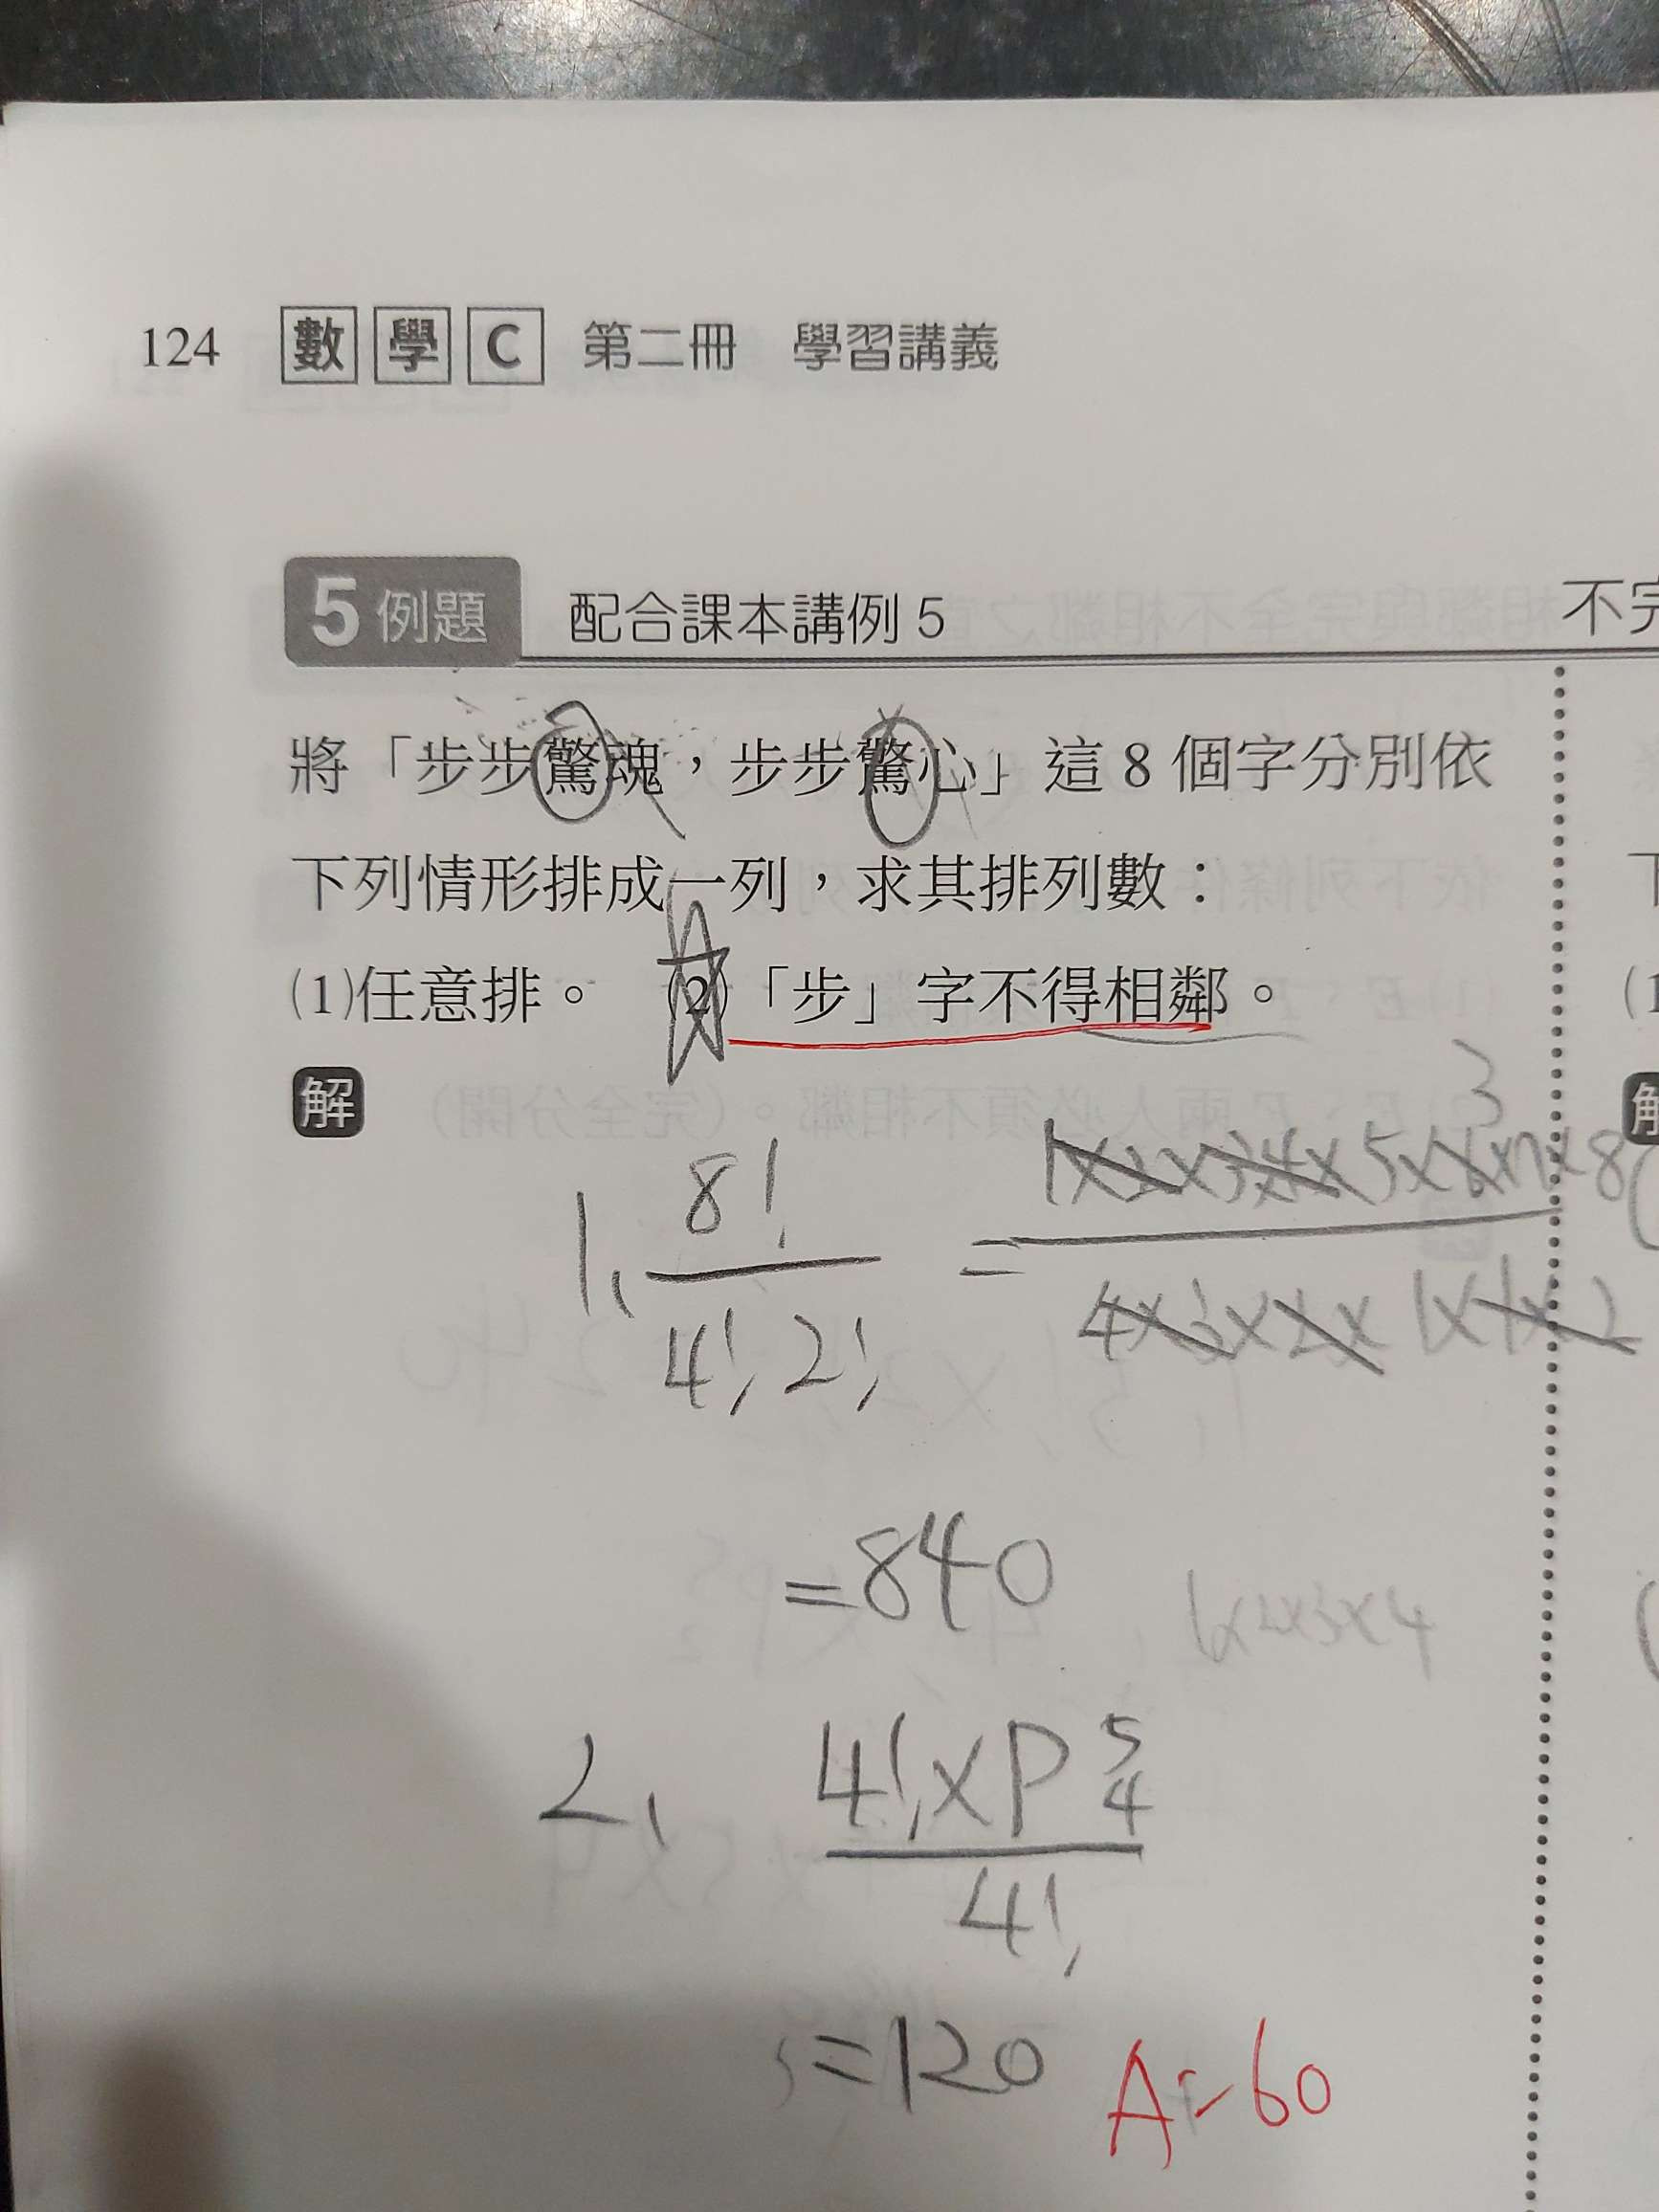 124 數學C 第二冊 學習講義
5 例題 配合課本講例 5 不完
將「步步驚魂,步步驚心」這 8 個字分別依
下列情形排成一列,求其排列數:
(1)任意排。 (2)「步」字不得相鄰。
解
3
1、 8! / 4! 2! = 1×2×3×4×5×6×7×8 / 4×3×2×1×1×2
=840
1×2×3×4
2、 4!×P 5 4 / 4!
=120 A:60